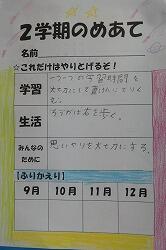 2学期のめあて
名前
☆これだけはやりとげるぞ!
学習
一つ一つの学習時間を
大切にして真けんにとりく
む。
生活
ろうかは右を歩く。
みんなの
ために
思いやりを大切にする。
【ふりかえり】
9月 10月 11月 12月